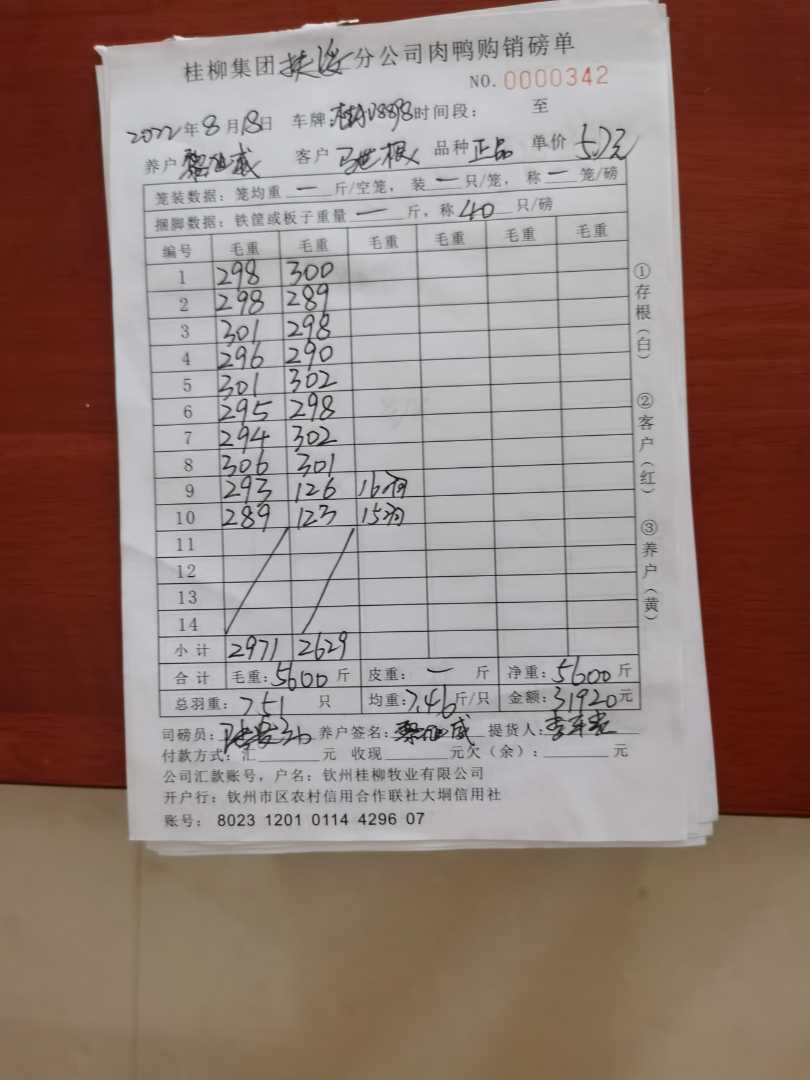 桂柳集团扶绥分公司肉鸭购销磅单
NO.0000342
2022年8月18日 车牌: 时间段: 至
养户 黎 威 客户 马 根 品种 正品 单价 5.7元
笼装数据: 笼均重 一 斤/空笼, 装 一 只/笼, 称 一 笼/磅
捆脚数据: 铁筐或板子重量 一 斤, 称 40 只/磅
编号 毛重 毛重 毛重 毛重 毛重 毛重
1 298 300
2 298 289
3 301 298
4 296 290
5 301 302
6 295 298
7 294 302
8 306 301
9 293 126 16羽
10 289 123 15羽
11
12
13
14
小计 2971 2629
合计 毛重: 5600 斤 皮重: 一 斤 净重: 5600 斤
总羽重: 751 只 均重: 7.46 斤/只 金额: 31920 元
司磅员: 养户签名: 黎 威 提货人: 李
付款方式: 汇 元 收现 元欠(余): 元
公司汇款账号, 户名: 钦州桂柳牧业有限公司
开户行: 钦州市区农村信用合作联社大垌信用社
账号: 8023 1201 0114 4296 07
①存根(白)
②客户(红)
③养户(黄)